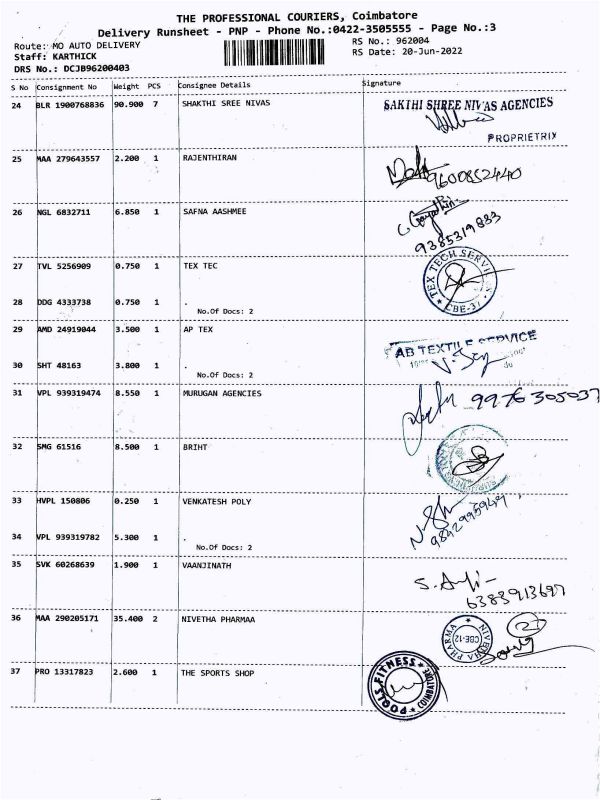 THE PROFESSIONAL COURIERS, Coimbatore
Delivery Runsheet - PNP - Phone No.:0422-3505555 - Page No.:3
Route: MO AUTO DELIVERY
RS No.: 962004
Staff: KARTHICK
RS Date: 20-Jun-2022
DRS No.: DCJB96200403
S No Consignment No Weight PCS Consignee Details Signature
24 BLR 1900768836 90.900 7 SHAKTHI SREE NIVAS
SAKTHI SHREE NIVAS AGENCIES
PROPRIETRIX
25 MAA 279643557 2.200 1 RAJENTHIRAN
9600852440
26 NGL 6832711 6.850 1 SAFNA AASHMEE
9385319883
27 TVL 5256909 0.750 1 TEX TEC
TEX TECH SERVICE
CBE-37
28 DDG 4333738 0.750 1 .
No.Of Docs: 2
29 AMD 24919044 3.500 1 AP TEX
AB TEXTILE SERVICE
30 SHT 48163 3.800 1 .
No.Of Docs: 2
31 VPL 939319474 8.550 1 MURUGAN AGENCIES
9976305037
32 SMG 61516 8.500 1 BRIHT
33 HVPL 150806 0.250 1 VENKATESH POLY
34 VPL 939319782 5.300 1 .
No.Of Docs: 2
35 SVK 60268639 1.900 1 VAANJINATH
6383913697
36 MAA 290205171 35.400 2 NIVETHA PHARMAA
NIVETHA PHARMA
CBE-12
37 PRO 13317823 2.600 1 THE SPORTS SHOP
POOLS FITNESS
COIMBATORE